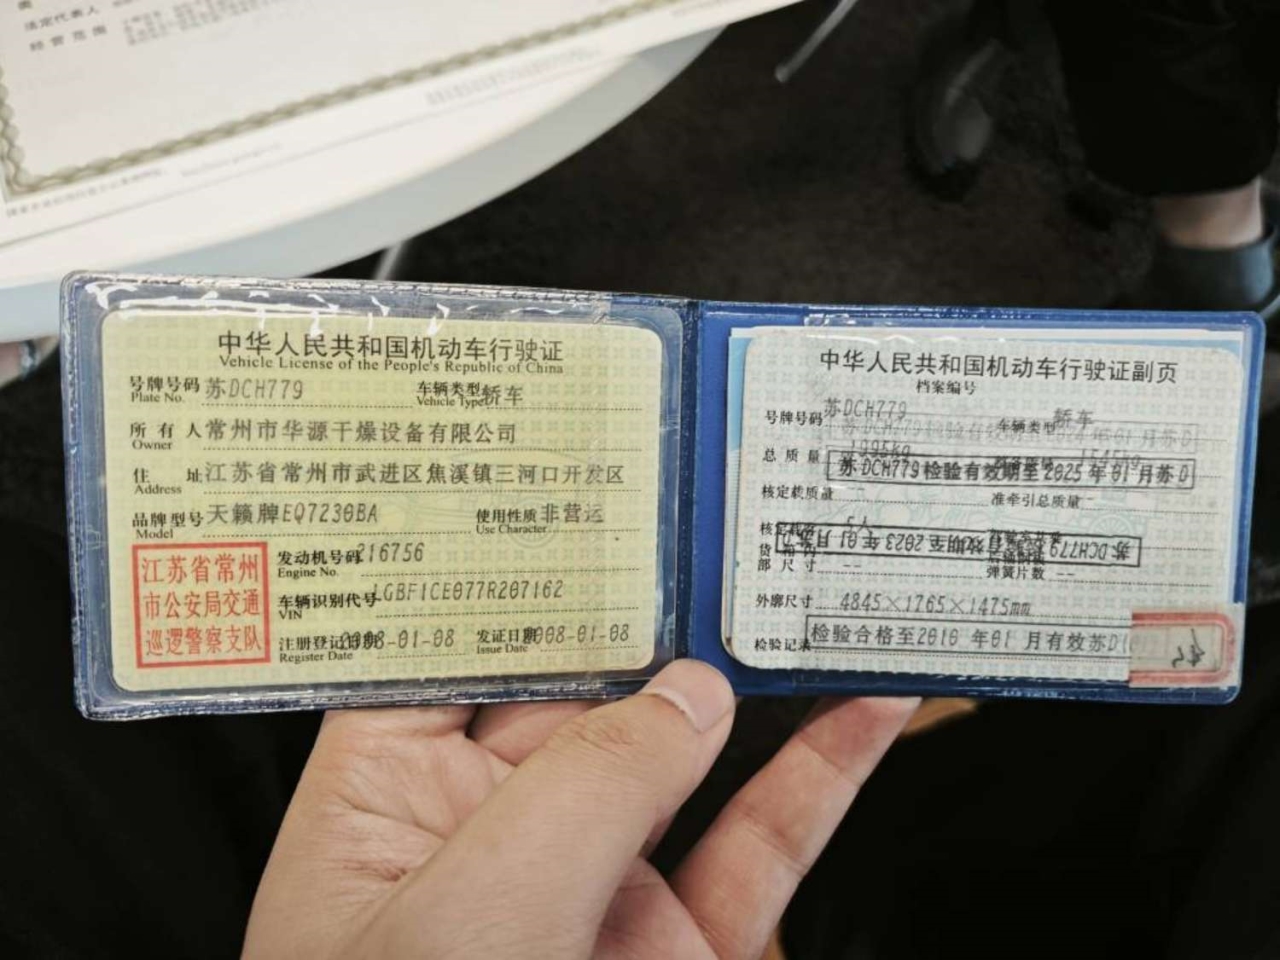 法定代表人
经营范围
中华人民共和国机动车行驶证
Vehicle License of the People's Republic of China
号牌号码 苏DCH779 车辆类型 轿车
Plate No. Vehicle Type
所有人 常州市华源干燥设备有限公司
Owner
住址 江苏省常州市武进区焦溪镇三河口开发区
Address
品牌型号 天籁牌EQ7230BA 使用性质 非营运
Model Use Character
江苏省常州
市公安局交通
巡逻警察支队
发动机号码 216756
Engine No.
车辆识别代号 LGBF1CE077R207162
VIN
注册登记日期 2008-01-08 发证日期 2008-01-08
Register Date Issue Date
中华人民共和国机动车行驶证副页
档案编号
号牌号码 苏DCH779 车辆类型 轿车
总质量 1995kg 1545kg
苏DCH779检验有效期至2025年01月苏D
核定载质量 -- 准牵引总质量 --
核定载客 5人
苏DCH779检验有效期至2023年01月苏D
部尺寸 -- 弹簧片数 --
外廓尺寸 4845×1765×1475mm
检验记录 检验合格至2010年01月有效苏D